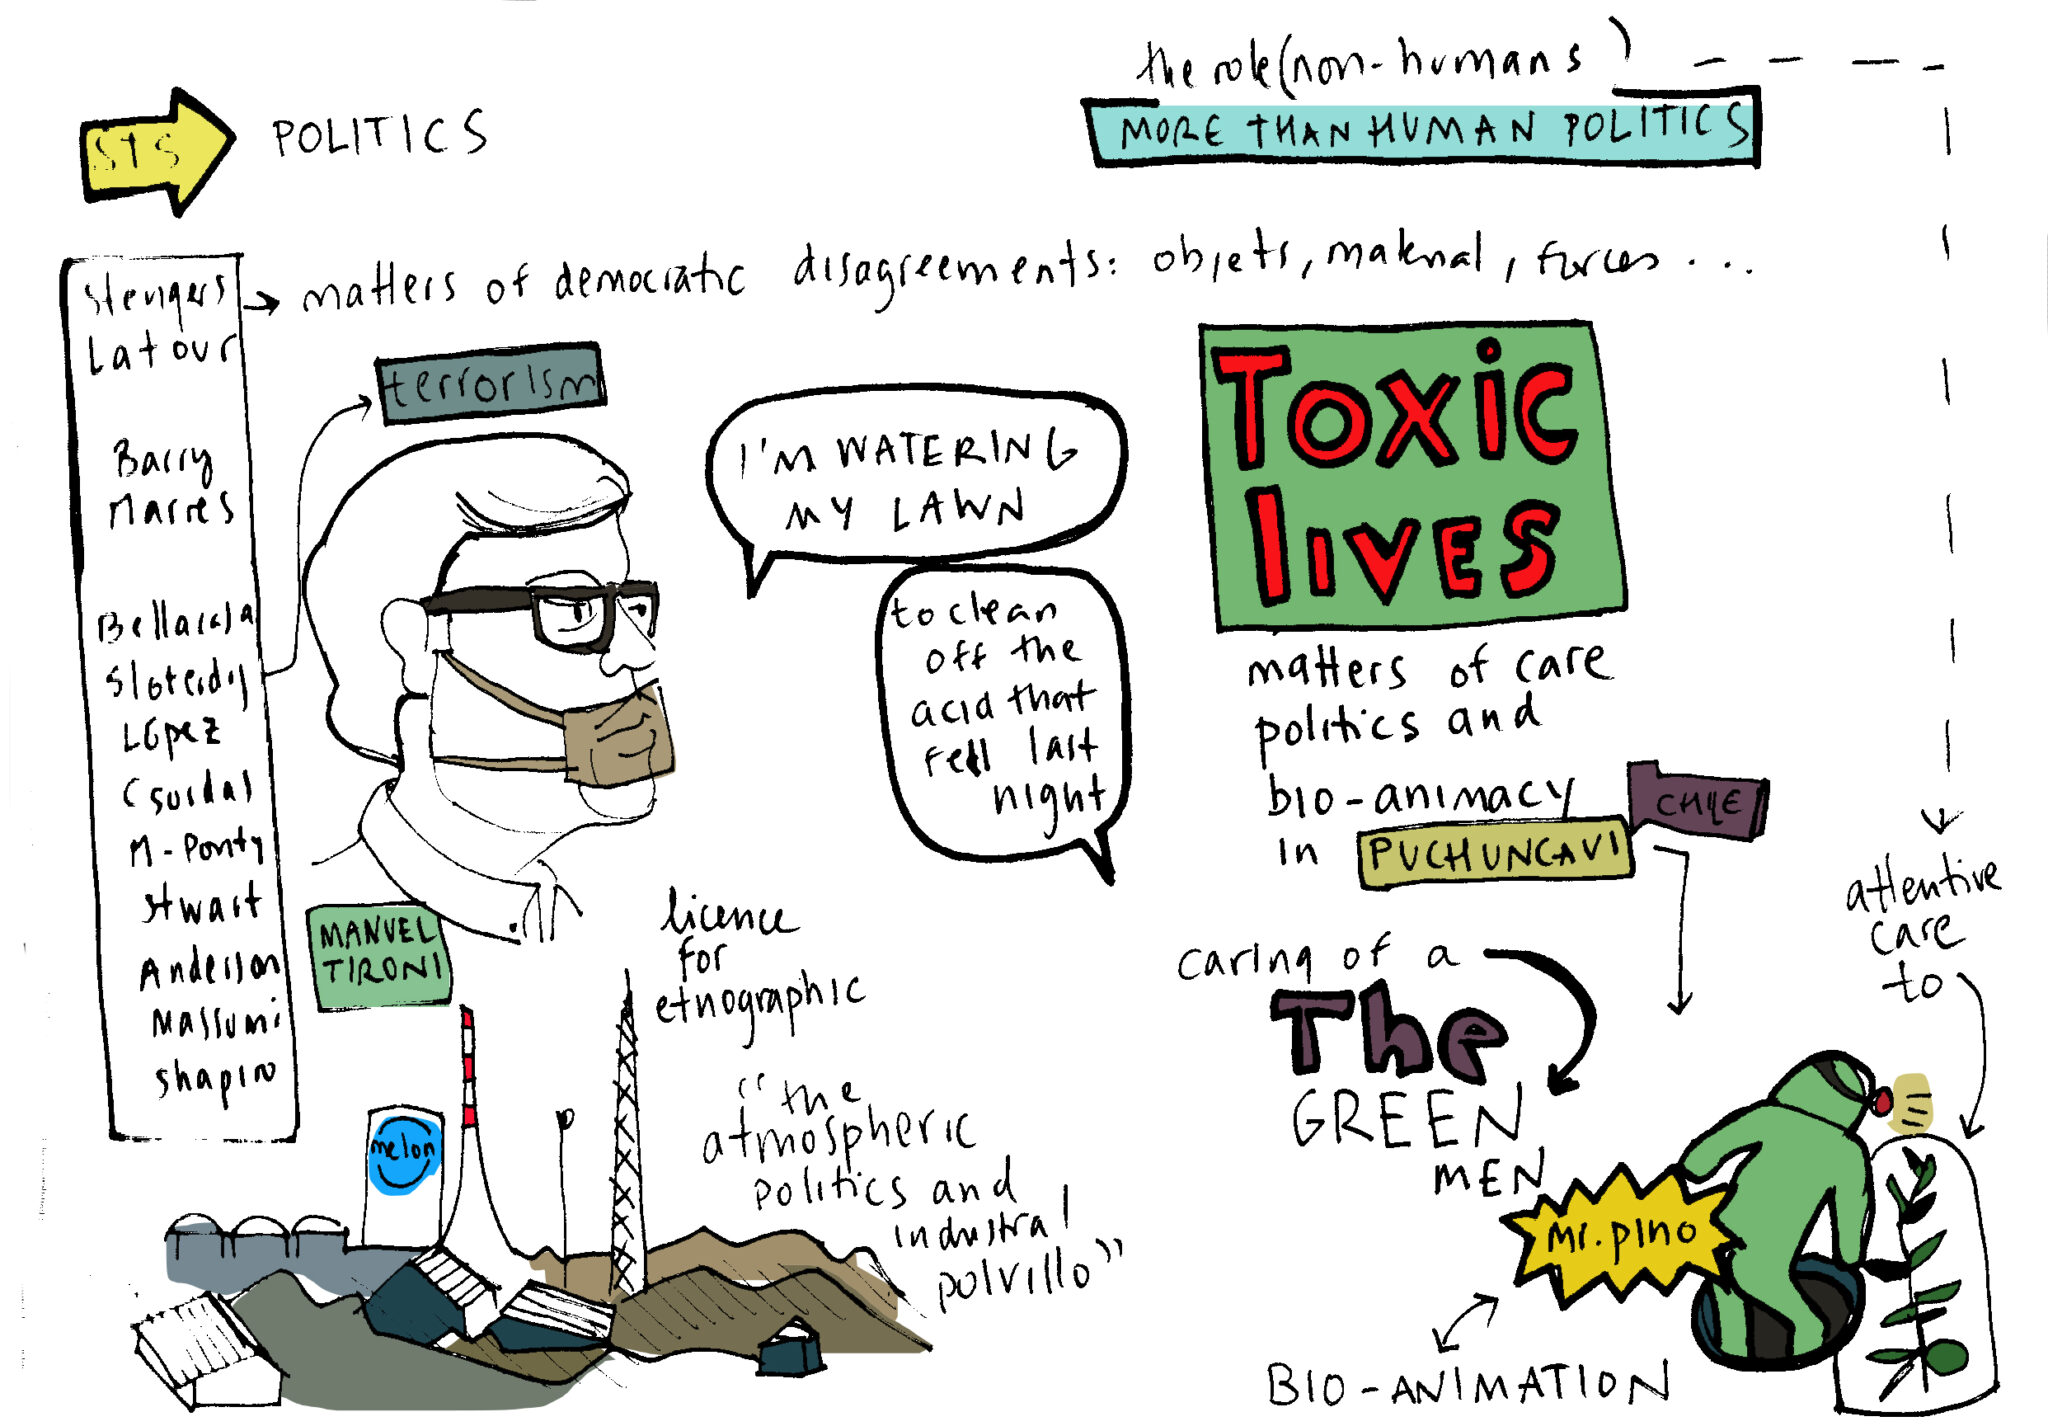 STS
POLITICS
the role (non-humans)
MORE THAN HUMAN POLITICS
Stengers
Latour
Barry
Marres
Sloterdij
López
M-Ponty
Stwart
Anderson
Massumi
Shapiro
matters of democratic disagreements: objets, material, forces...
terrorism
I'M WATERING
MY LAWN
to clean
off the
acid that
fell last
night
TOXIC
LIVES
matters of care
politics and
bio-animacy
in PUCHUNCAVI
CHILE
MANUEL
TIRONI
licence
for
etnographic
"the
atmospheric
politics and
industrial
polvillo"
melon
caring of a
The
GREEN
MEN
Mr. pino
BIO-ANIMATION
attentive
care
to